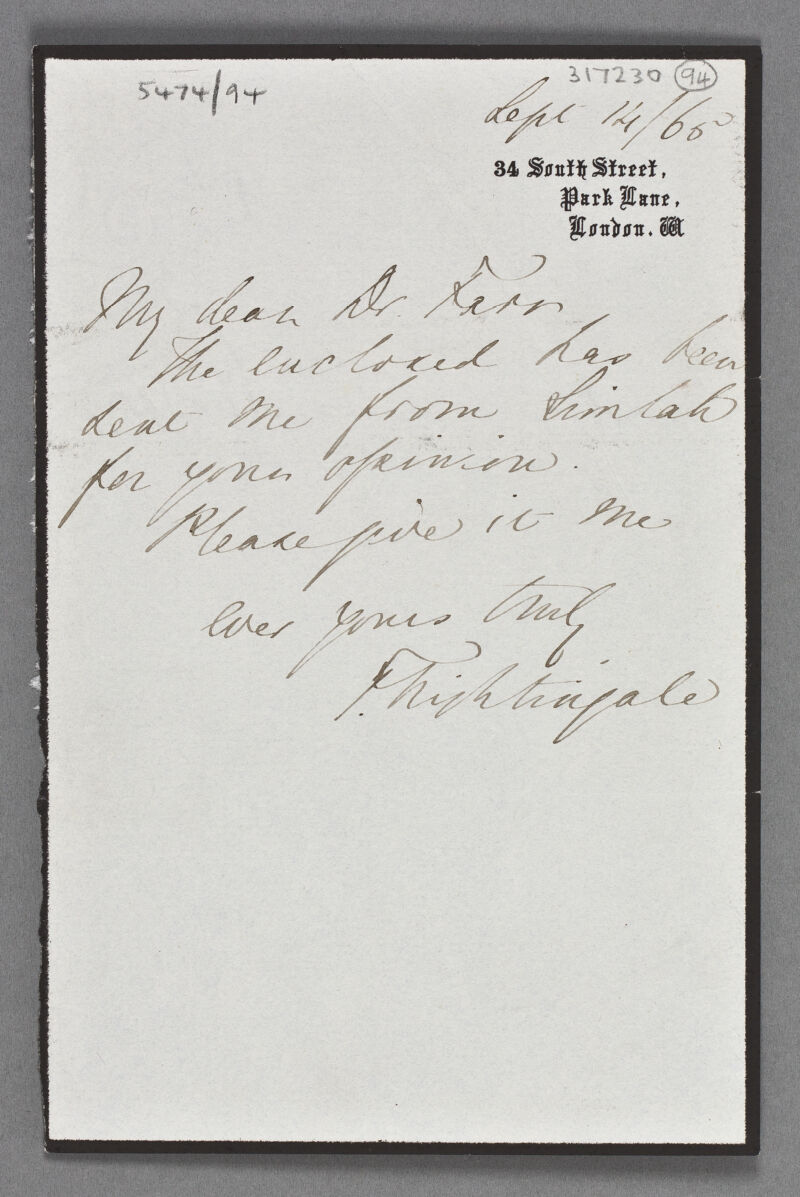 5474/94
317230 94
Sept 14/65
34 South Street,
Park Lane,
London. W
My dear Dr. Farr
The enclosed has been
sent me from Simlah
for your opinion.
Please give it me
ever yours truly
F. Nightingale